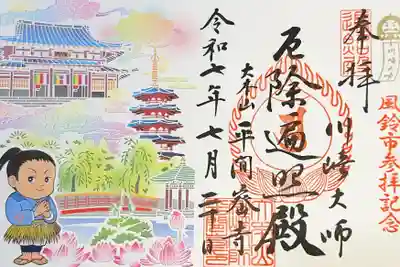 奉拝
風鈴市参拝記念
川崎大師
厄除遍照殿
大本山
平間寺
令和七年七月二十日